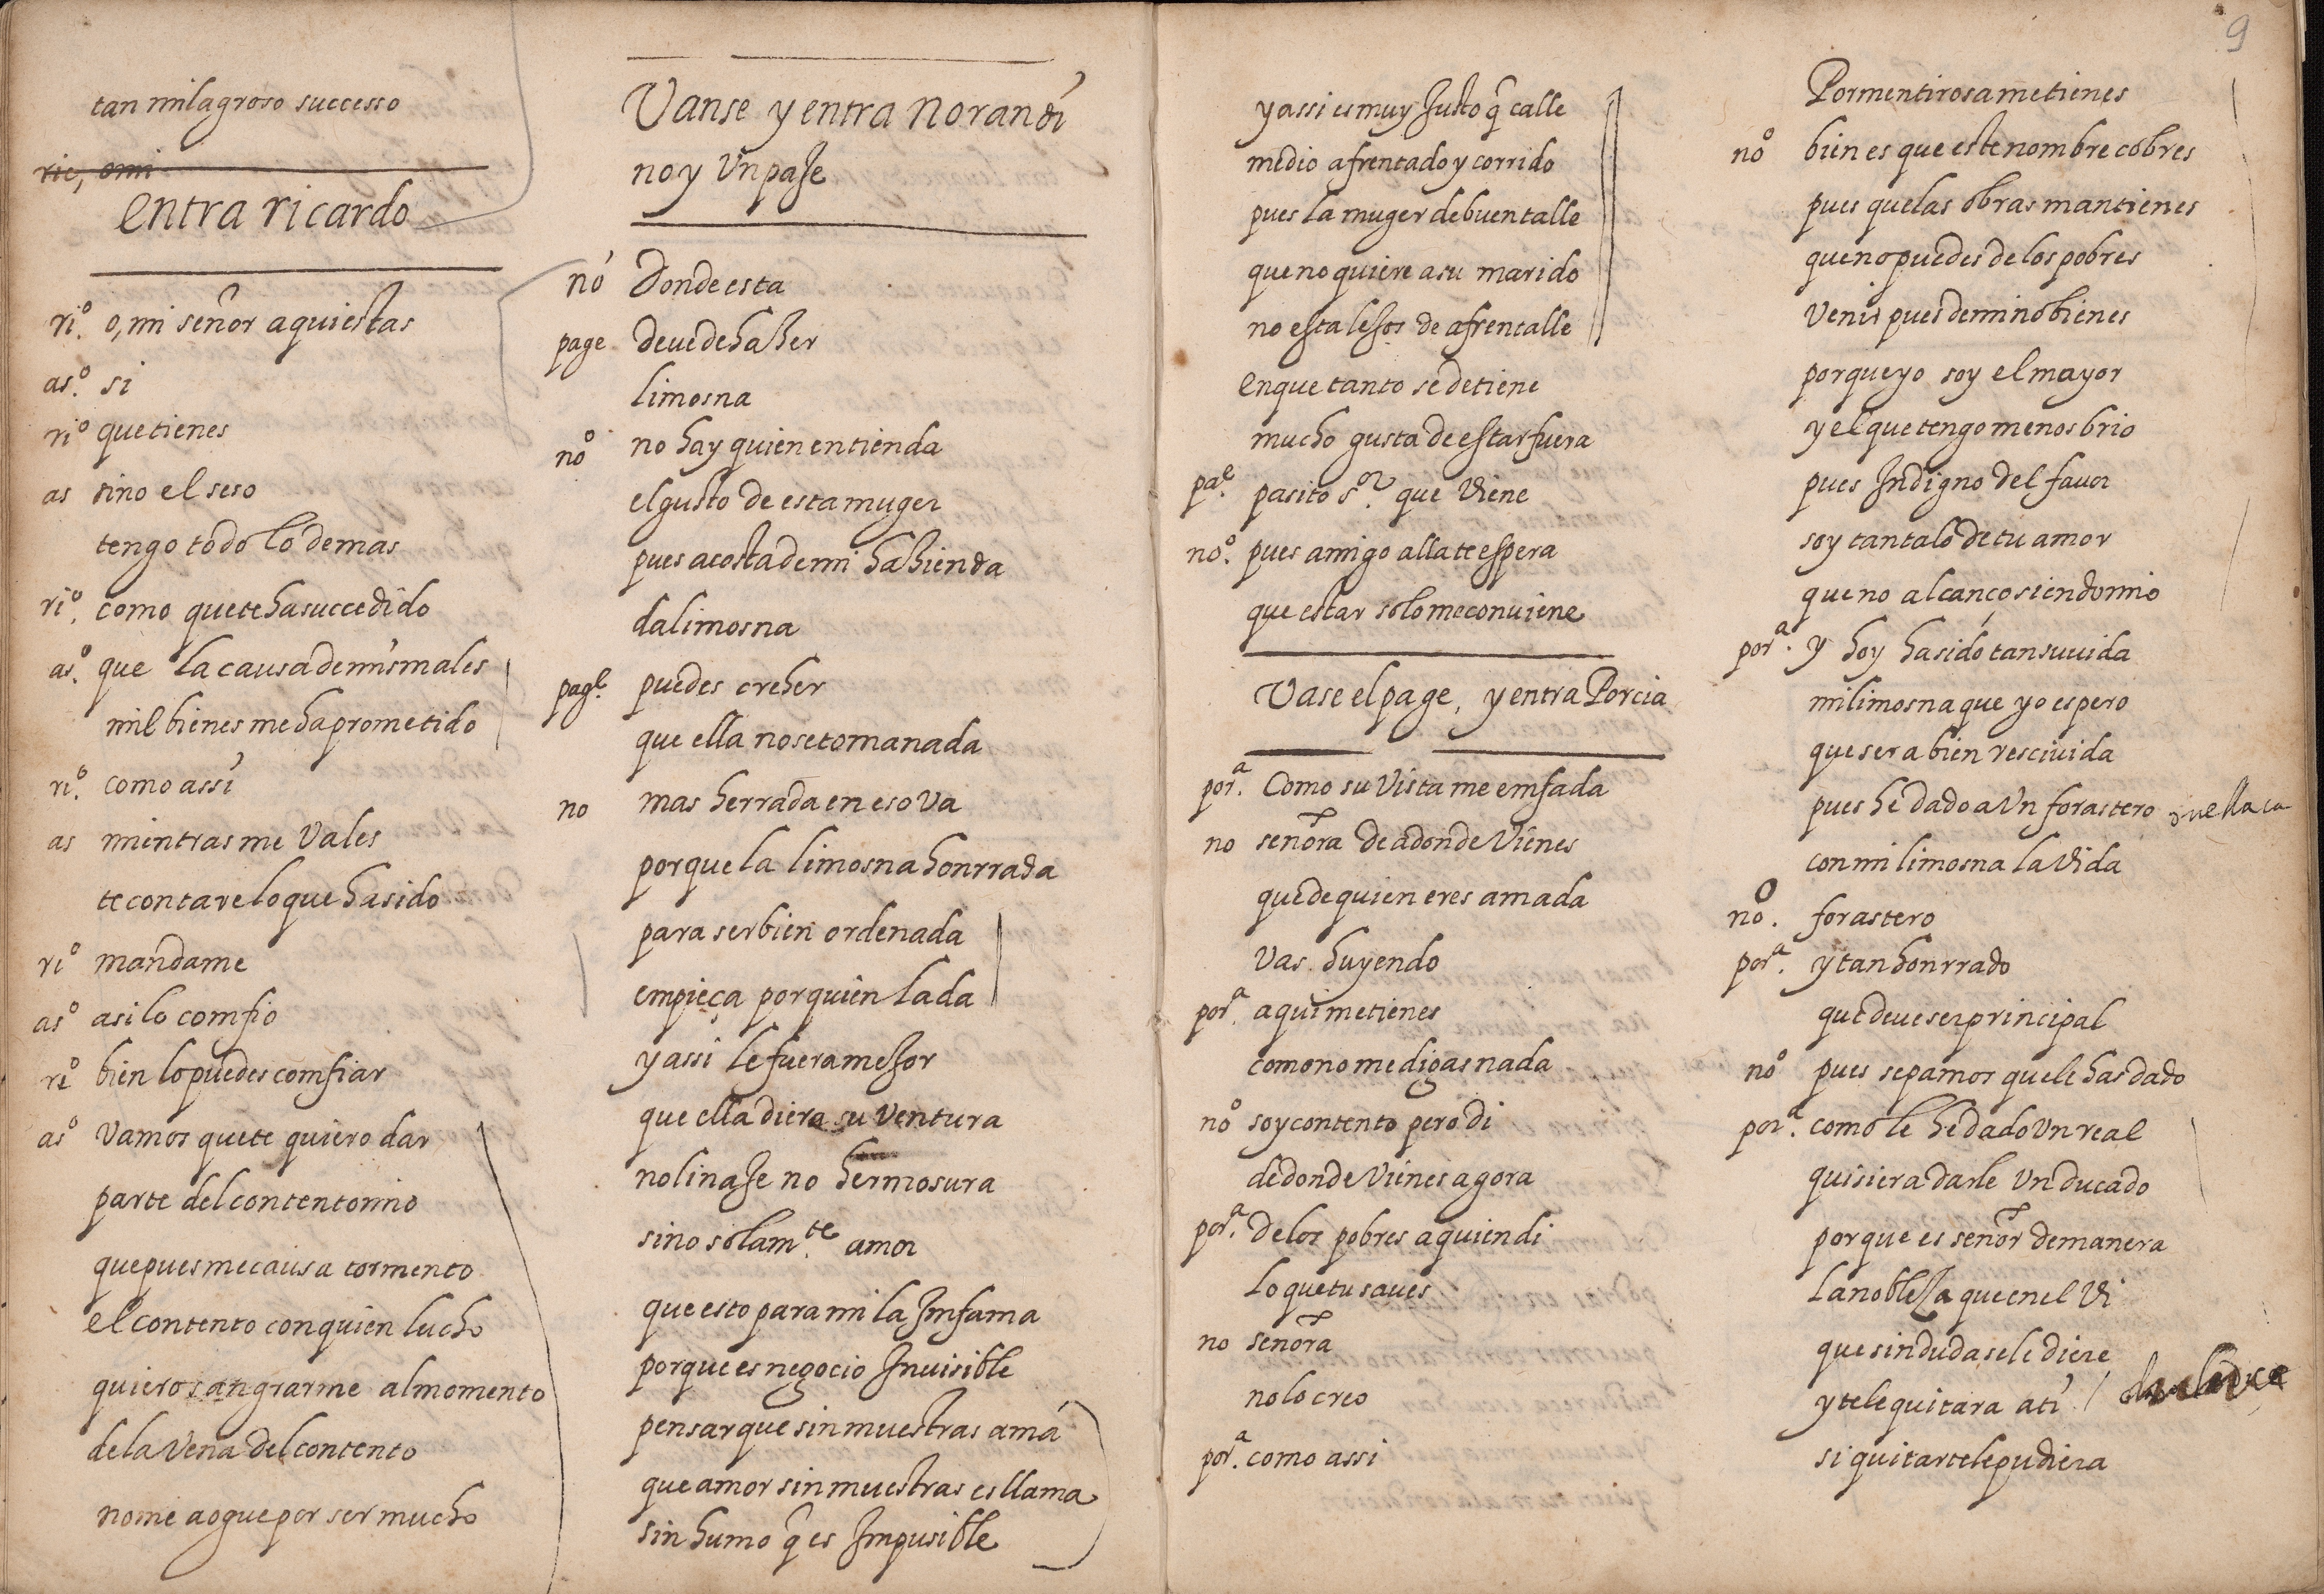 tan milagroso successo
ric, omi
entra ricardo
ri.º o, mi señor aqui estas
as.º si
riº que tienes
as sino el seso
tengo todo lo demas
ri.º como que te ha succedido
as.º que la causa de mis males
mil bienes me ha prometido
ri.º como assi
as mientras me vales
te contare lo que ha sido
riº mandame
asº asi lo comfio
riº bien lo puedes comfiar
asº vamos que te quiero dar
parte del contento mio
que pues me causa tormento
el contento con quien lucho
quiero sangrarme al momento
de la vena del contento
no me aogue por ser mucho
Vanse y entra norandi
no y Un paje
nó Donde esta
page deue de hazer
limosna
nº no hay quien entienda
el gusto de esta muger
pues a costa de mi hazienda
da limosna
page. puedes creher
que ella no se toma nada
no mas herrada en eso va
porque la limosna honrrada
para ser bien ordenada
empieça por quien la da
y assi le fuera mejor
que ella diera su ventura
no linaje no hermosura
sino solam.te amor
que esto para mi la Imfama
porque es negocio Inuisible
pensar que sin muestras ama
que amor sin muestras es llama
sin humo q̃ es Impusible
9
y assi es muy Justo q̃ calle
medio afrentado y corrido
pues la muger de buen talle
que no quiere a su marido
no esta lejos de afrentalle
en que tanto se detiene
mucho gusta de estar fuera
pae. pasito s.or que viene
no.º pues amigo alla te espera
que estar solo me conviene
Vase el page, y entra Porcia
por.a Como su vista me emfada
no señora de adonde vienes
que de quien eres amada
vas huyendo
por.a aqui me tienes
como no me digas nada
nº soy contento pero di
de donde vienes agora
por.a de los pobres a quien di
lo que tu saues
no señora
no lo creo
por.a como assi
Por mentirosa me tienes
nº bien es que este nombre cobres
pues que las obras mantienes
que no puedes de los pobres
venir pues de mi no bienes
porque yo soy el mayor
y el que tengo menos brio
pues Indigno del fauor
soy tantalo de tu amor
que no alcanço siendo mio
por.a y hoy ha sido tan suuida
mi limosna que yo espero
que sera bien resciuida
pues he dado a Vn forastero
con mi limosna la vida
nº. forastero
por.a y tan honrrado
que deue ser principal
nº pues sepamos que le has dado
por.a como le he dado Vn real
quisiera darle Vn ducado
porque es señor de manera
la nobleza que en el vi
que sin duda se le diere
y te le quitara a ti
si quitartele pudiera